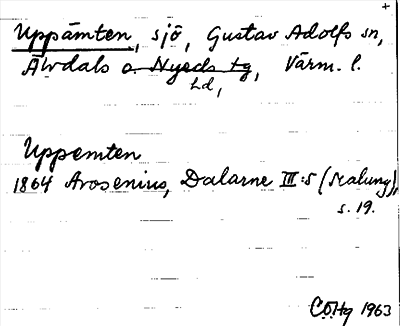 +
Uppämten, sjö, Gustav Adolfs sn,
Älvdals o. Nyeds tg, Värm. l.
hd,
Uppemten
1864 Arosenius, Dalarne III:5 (Malung),
s. 19.
CÖHg 1963